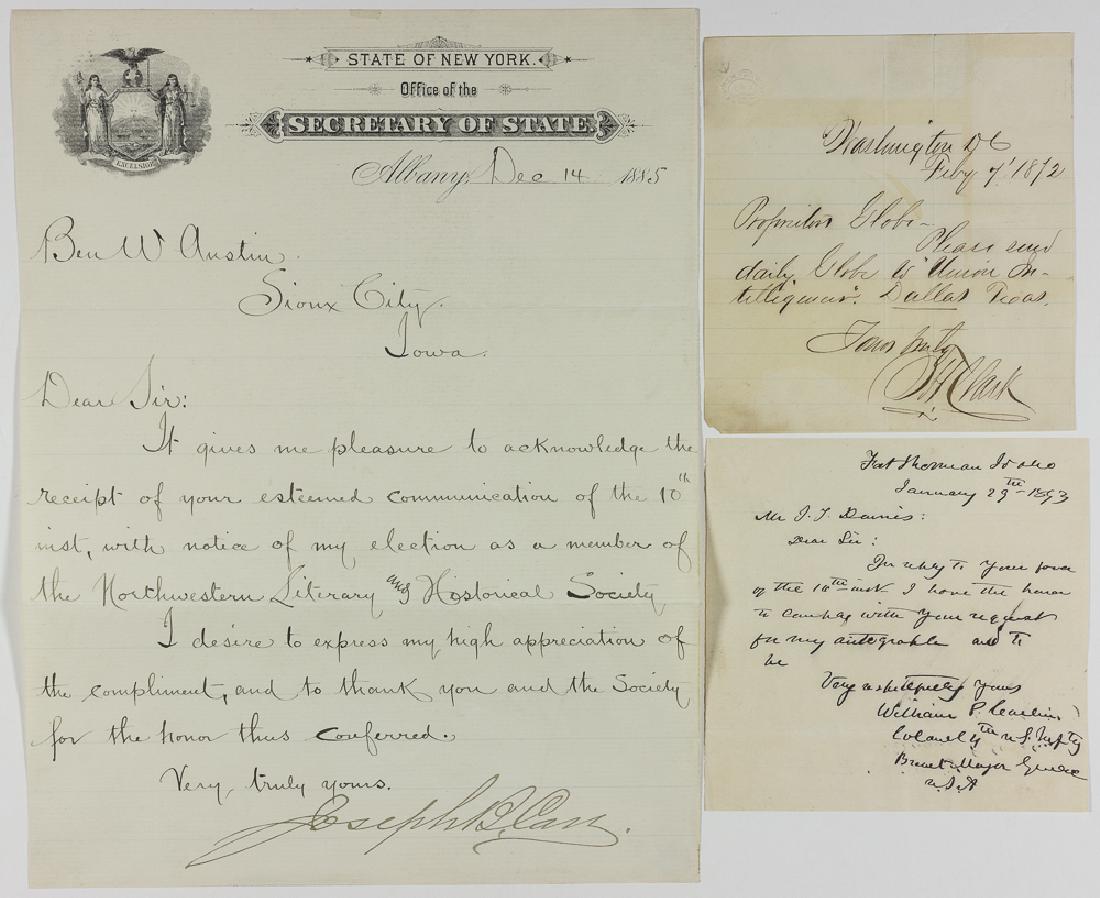 EXCELSIOR
STATE OF NEW YORK.
Office of the
SECRETARY OF STATE.
Albany, Dec 14 1885
Ben W Austin.
Sioux City.
Iowa.
Dear Sir:
It gives me pleasure to acknowledge the
receipt of your esteemed communication of the 10th
inst, with notice of my election as a member of
the Northwestern Literary and Historical Society
I desire to express my high appreciation of
the compliment, and to thank you and the Society
for the honor thus conferred.
Very truly yours.
Joseph B. Carr.
Washington DC
Feby 7' 1872
Proprietors Globe—
Please send
daily Globe to "Union In-
telligencer". Dallas Texas.
Yours truly
Clark
Fort Sherman Idaho
January 29th - 1893
Mr J. T. Davies:
Dear Sir:
In reply to your favor
of the 10th inst I have the honor
to comply with your request
for my autograph and to
be
Very respectfully Yours
William P. Carlin
Colonel 4th U.S. Infty
Brevet Major General
U.S.A